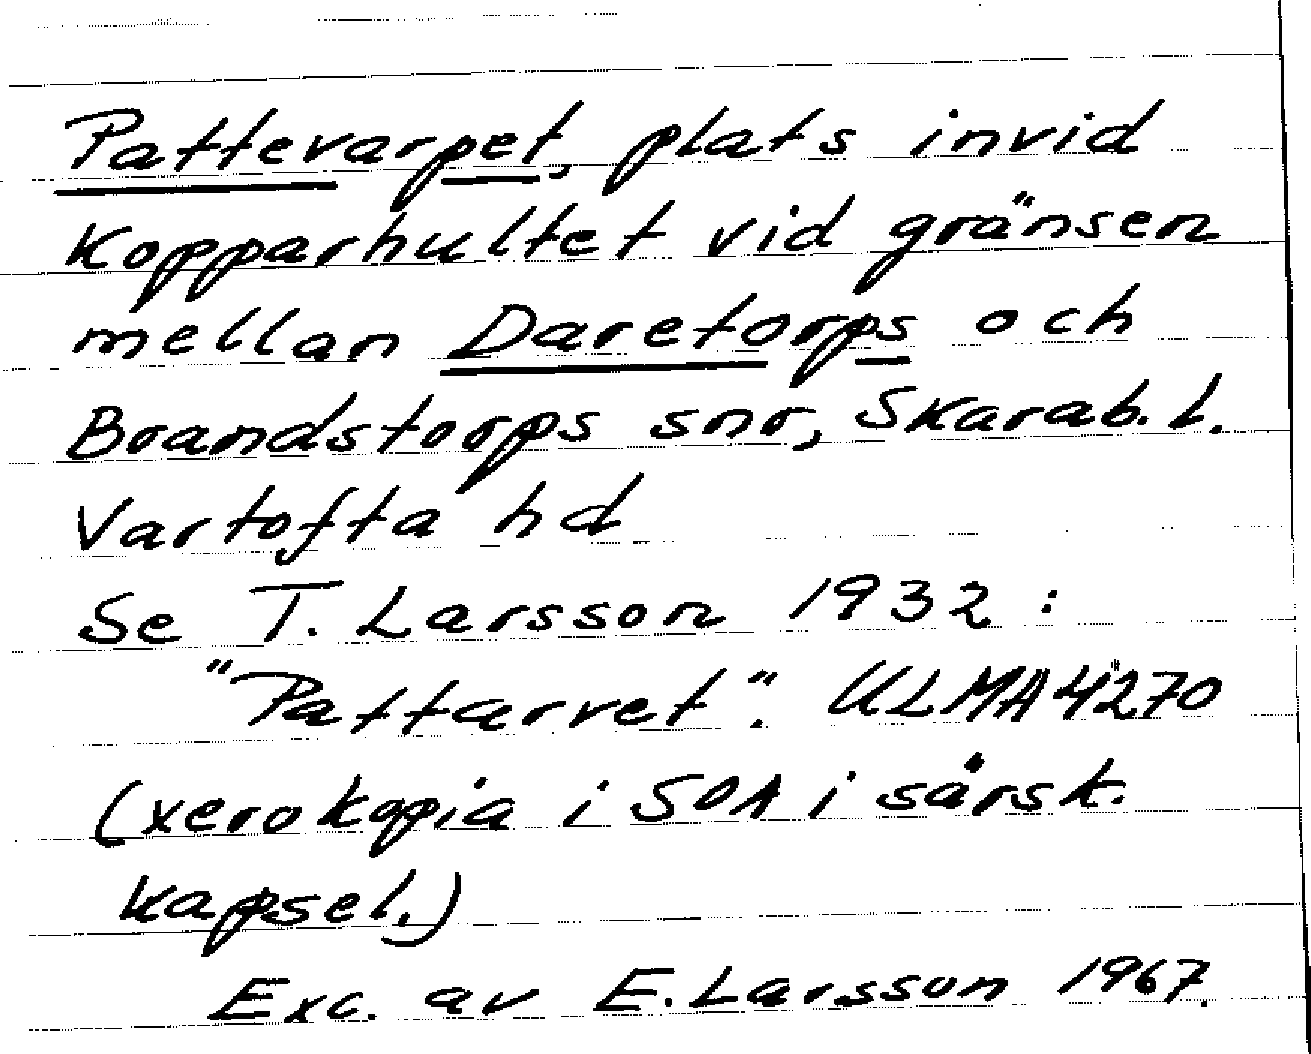 Pattevarpet, plats invid
Kopparhultet vid gränsen
mellan Daretorps och
Brandstorps snr, Skarab. l.
Vartofta hd
Se T. Larsson 1932:
"Pattarvet". ULMA 4270
(xerokopia i SOA i särsk.
kapsel.)
Exc. av E. Larsson 1967.